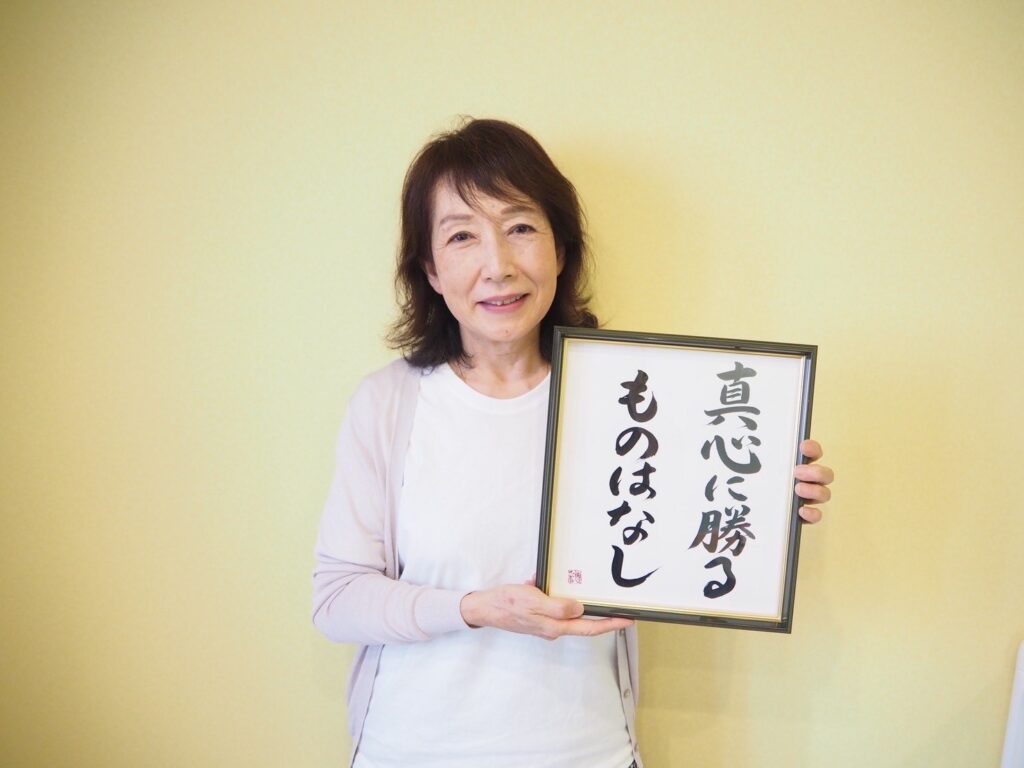 真心に勝る
ものはなし